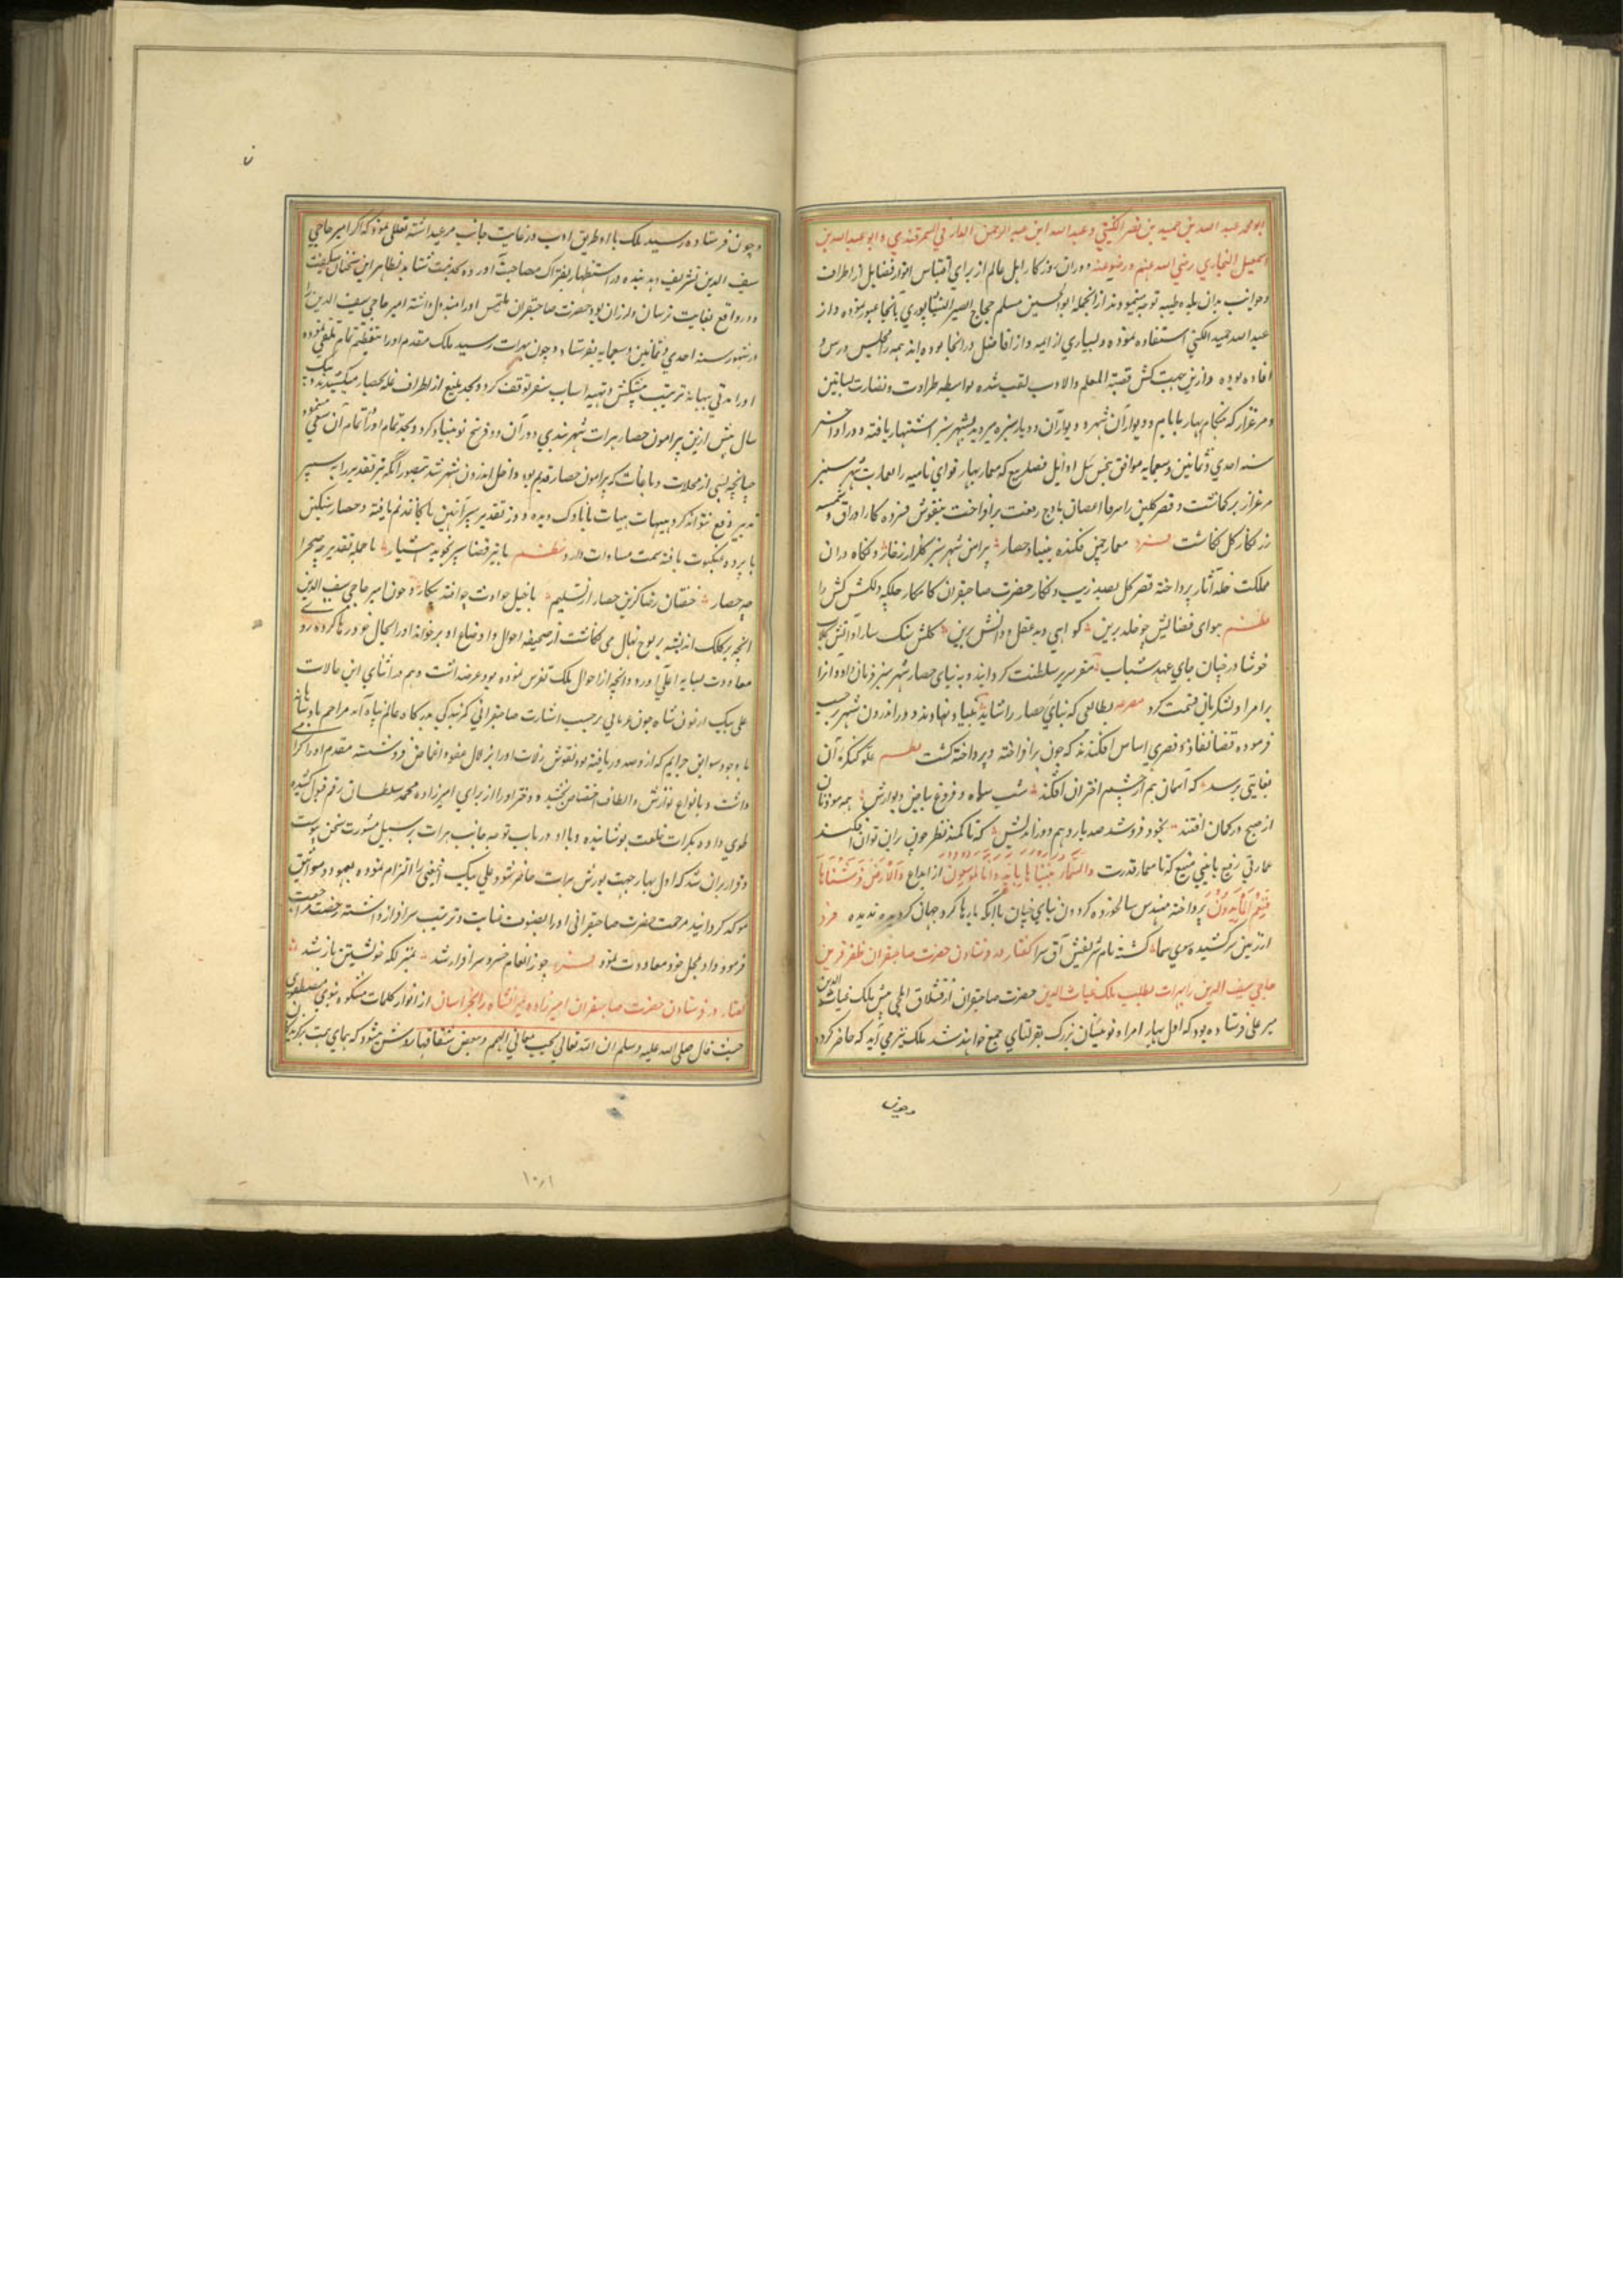 ابو محمد عبد الله بن حمید بن نصر الکشی و عبد الله ابن عبد الرحمن الدارمی السمرقندی و ابو عبد الله بن
اسمعیل البخاری رضی الله عنهم و رضوعنه دوران روزکار اهل عالم از برای اقتباس انوار فضایل از اطراف
و جوانب بدان بلده طیبه توجه مینمودند از انجمله ابو الحسین مسلم حجاج النیشابوری بانجا عبور نموده و از
عبد الله حمید الکشی استفاده نموده و بسیاری از ایمه و از افاضل در انجا بوده اند همه را مجلس درس و
افاده بوده و ازین جهت کش قبة العلم والادب لقب شده بواسطه طراوت و نضارت بساتین
و مرغزار که هنکام بهار بابام و دیوار آن شهر و دیار سبزه میروید بشهر سبز اشتهار یافته و در اواخر
سنه احدی و ثمانین و سبعمایه موافق پیچین ئیل اوایل فصل ربیع که معمار بهار قوای نامیه را بعمارت شهر سبز
مرغزار بر کماشت و قصر کلبن را سرفا اغصان باوج رفعت برافراخت بنقوش اوراق و شمسه
زرنکار کل نکاشت معمار چمن فکنده بنیاد حصار پیرامن شهر سبز کلزار
مملکت خلد آثار پرداخته قصر کل بصد زیب و نکار حضرت صاحبقران کامکار جلکه دلکش کش را
هوای فضایش چو خلد برین کواهی دهد عقل و دانش برین کلش سنک سارا و آتش کلاب
خوشا در چنان جای عهد شباب مقر سریر سلطنت کردانید و به بنای حصار شهر سبز فرمان داد و انرا
بر امرا و لشکریان قسمت کرد مصرعه بطالعی که بنای حصار را شاید بنیاد نهادند و در اندرون شهر بر حسب
فرموده قضا نفاذ قصری اساس افکندند که چون برافراخته و پرداخته کشت علو کنکره آن
بغایتی برسد که آسمان هم از چشم اختران افکند شب سیاه و فروغ بیاض دیوارش همه موذنان
از صبح در کمان افتند بخود فروشد صد بار وهم دور اندیش که تا کمند نظر چون بران توان افکند
عمارتی رفیع بامنی منیع که تا معمار قدرت والسماء بنیناها باید وانا لموسعون از ابداع والارض فرشناها
فنعم الماهدون پرداخته مهندس سالخورده کردون بنای چنان با انکه بارها کرد جهان کردیده ندیده فرد
از زمین برکشیده سوی سما کشته نام شریفش آق سرا کفتار در فرستادن حضرت صاحبقران ظفر قرین
حاجی سیف الدین را بهرات بطلب ملک غیاث الدین حضرت صاحبقران از قشلاق ایلچی پیش ملک غیاث الدین
میر علی فرستاده بود که اول بهار امرا و نوئینان بزرک بقورلتای جمع خواهند شد ملک نیز می آید که حاضر کردد
و چون
و چون فرستاده رسید ملک با او طریق ادب و رعایت جانب مرعیداشته تعللی نمود که اکر امیر حاجی
سیف الدین تشریف دهد بنده در استظهار بفتراک مصاحبت آورده بخدمت شتابد بظاهر این سخنان میکفت
و در واقع بغایت ترسان و لرزان بود حضرت صاحبقران ملتمس او را مبذول داشته امیر حاجی سیف الدین را
در شهور سنه احدی و ثمانین و سبعمایه بفرستاد و چون بهرات رسید ملک مقدم او را بتعظیم تمام تلقی نموده
او را مدتی ببهانه ترتیب پیشکش و تهیه اسباب سفر توقف کرد و بجد بلیغ از اطراف غله بحصار میکشیدند و یک
سال پیش ازین پیرامون حصار هرات شهربندی دور آن دو فرسخ نو بنیاد کرد و بجد تمام در اتمام آن سعی مینمود
چنانچه بسی از محلات و باغات که پیرامون حصار قدیم بود داخل اندرون شهر شد بتصور آنکه تیر تقدیر را به سپر
تدبیر دفع تواند کرد هیهات هیهات با ناوک دیده دوز تقدیر سپر آهنین با کاغذ نم یافته و حصار سنکین
با پرده عنکبوت بافته سمت مساوات دارد نظم با تیر قضا سپر نجوید هشیار با حمله تقدیر چه صحرا
چه حصار خفتان رضا کزین حصار از تسلیم با خیل حوادث چو افتد بکار و چون امیر حاجی سیف الدین
انچه بر کلک اندیشه بر لوح نهال می نکاشت از صحیفه احوال و اوضاع او بر خواند او را بحال خود رها کرده روی
معاودت بپایه اعلی آورد و انچه از احوال ملک تفرس نموده بود عرضداشت و هم در اثنای این حالات
علی بیک ارغون شاه جون غربانی بر حسب اشارت صاحبقرانی کمربندکی بدرکاه عالم پناه آمد مراحم پادشاهانه
با وجود سوابق جرایم که ازو صدور یافته بود نقوش زلات او را بزلال عفو و اغماض فروشسته مقدم او را کرامی
داشت و بانواع نوازش و الطاف اختصاص بخشید و دختر او را از برای امیرزاده محمد سلطان رقم قبول کشیده
طوی داده بکرات خلعت پوشانیده و با او در باب توجه جانب هرات بر سبیل مشورت سخن پیوست
و قرار بران شد که اول بهار جهت یورش هرات حاضر شود علی بیک اینمعنی را التزام نموده بعهود و مواثیق
موکد کردانید مرحمت حضرت صاحبقرانی او را بصنوف عنایت و تربیت سرافراز داشته رخصت مراجعت
فرمود و او بمحل خود معاودت نمود چو ز انعام خسرو سرافراز شد بمنزلکه خویشتن باز شد
کفتار در فرستادن حضرت صاحبقران امیرزاده میرانشاه را بخراسان از انوار کلمات مشکوه نبوی مصطفوی
حیث قال صلی الله علیه وسلم ان الله تعالی یحب معالی الهمم و یبغض سفسافها روشن میشود که همای همت بزرکان